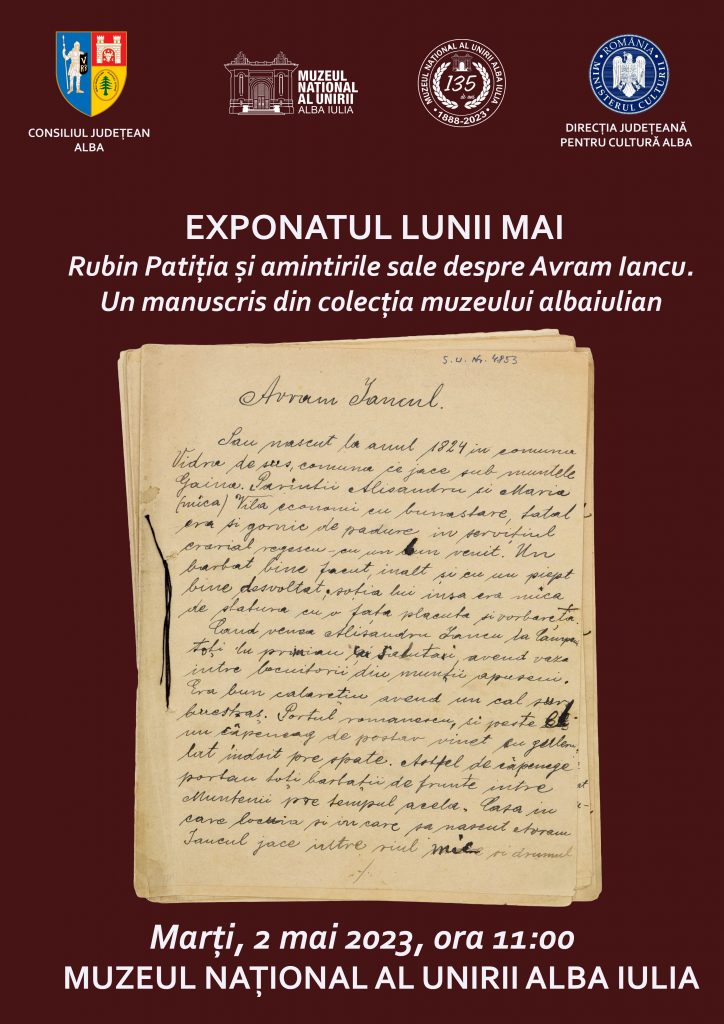 CONSILIUL JUDEȚEAN
ALBA
MUZEUL
NAȚIONAL
AL UNIRII
ALBA IULIA
MUZEUL NAȚIONAL AL UNIRII ALBA IULIA
135
de ani
1888-2023
ROMÂNIA
MINISTERUL CULTURII
DIRECȚIA JUDEȚEANĂ
PENTRU CULTURĂ ALBA
EXPONATUL LUNII MAI
Rubin Patiția și amintirile sale despre Avram Iancu.
Un manuscris din colecția muzeului albaiulian
Nr. 4853
Avram Iancul.
Sau nascut la anul 1824 in comuna
Vidra de sus, comuna ce jace sub muntele
Gaina. Parintii Alisandru si Maria
(mica) economi cu bunastare, tatal
era si gornic de padure in servitiul
erarial regescu - cu un bun venit. Un
barbat bine facut, inalt si cu un piept
bine desvoltat, soția lui insa era mica
de statura cu o fata placuta si vorbareță.
Cand venea Alisandru Iancu la Câmpeni
toți lu primiau si salutau avend vaza
intre locuitorii din munții apuseni.
Era bun calaretiu avend un cal sur
Portul romanescu, si peste
un căpeneag de postav vinet cu
lat indoit pre spate. Astfel de căpenege
portau toți barbații de frunte intre
Muntenii pre tempul acela. Casa in
care locuia si in care sa nascut Avram
Iancul jace intre riul mic si drumul
Marți, 2 mai 2023, ora 11:00
MUZEUL NAȚIONAL AL UNIRII ALBA IULIA